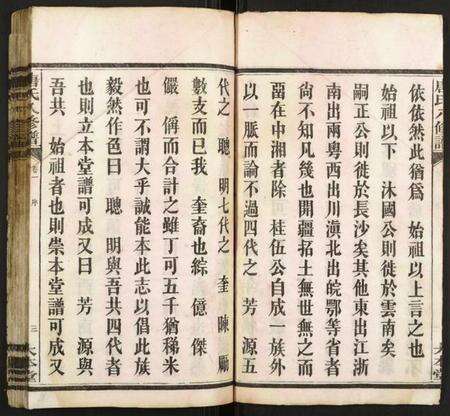 依依然此猶為 始祖以上言之也
始祖以下 沐國公則徙於雲南矣
嗣正公則徙於長沙矣其他東出江浙
南出兩粵西出川滇北出皖鄂等省者
尚不知凡幾也開疆拓土無世無之而
留在中湘者除 桂伍公自成一族外
以一脈而論不過四代之 芳 源五
代之 聰 明七代之 奎 陳 勵
數支而已我 奎裔也綜 億 傑
儼 俌而合計之雖丁可五千猶稊米
也可不謂大乎誠能本此志以倡此族
毅然作色曰 聰 明與吾共四代者
也則立本堂譜可成又曰 芳 源與
吾共 始祖者也則崇本堂譜可成又
唐氏八修譜
卷一 序
三 大本堂
唐氏八修譜
大本堂